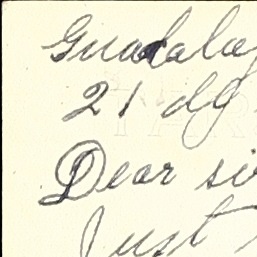 Guadalaj
21 dg
Dear si
Just